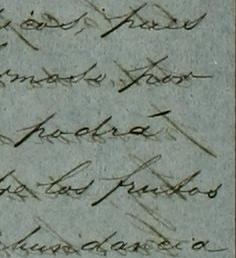 icos; pues
rmoso por
podrá
re los frutos
bundancia